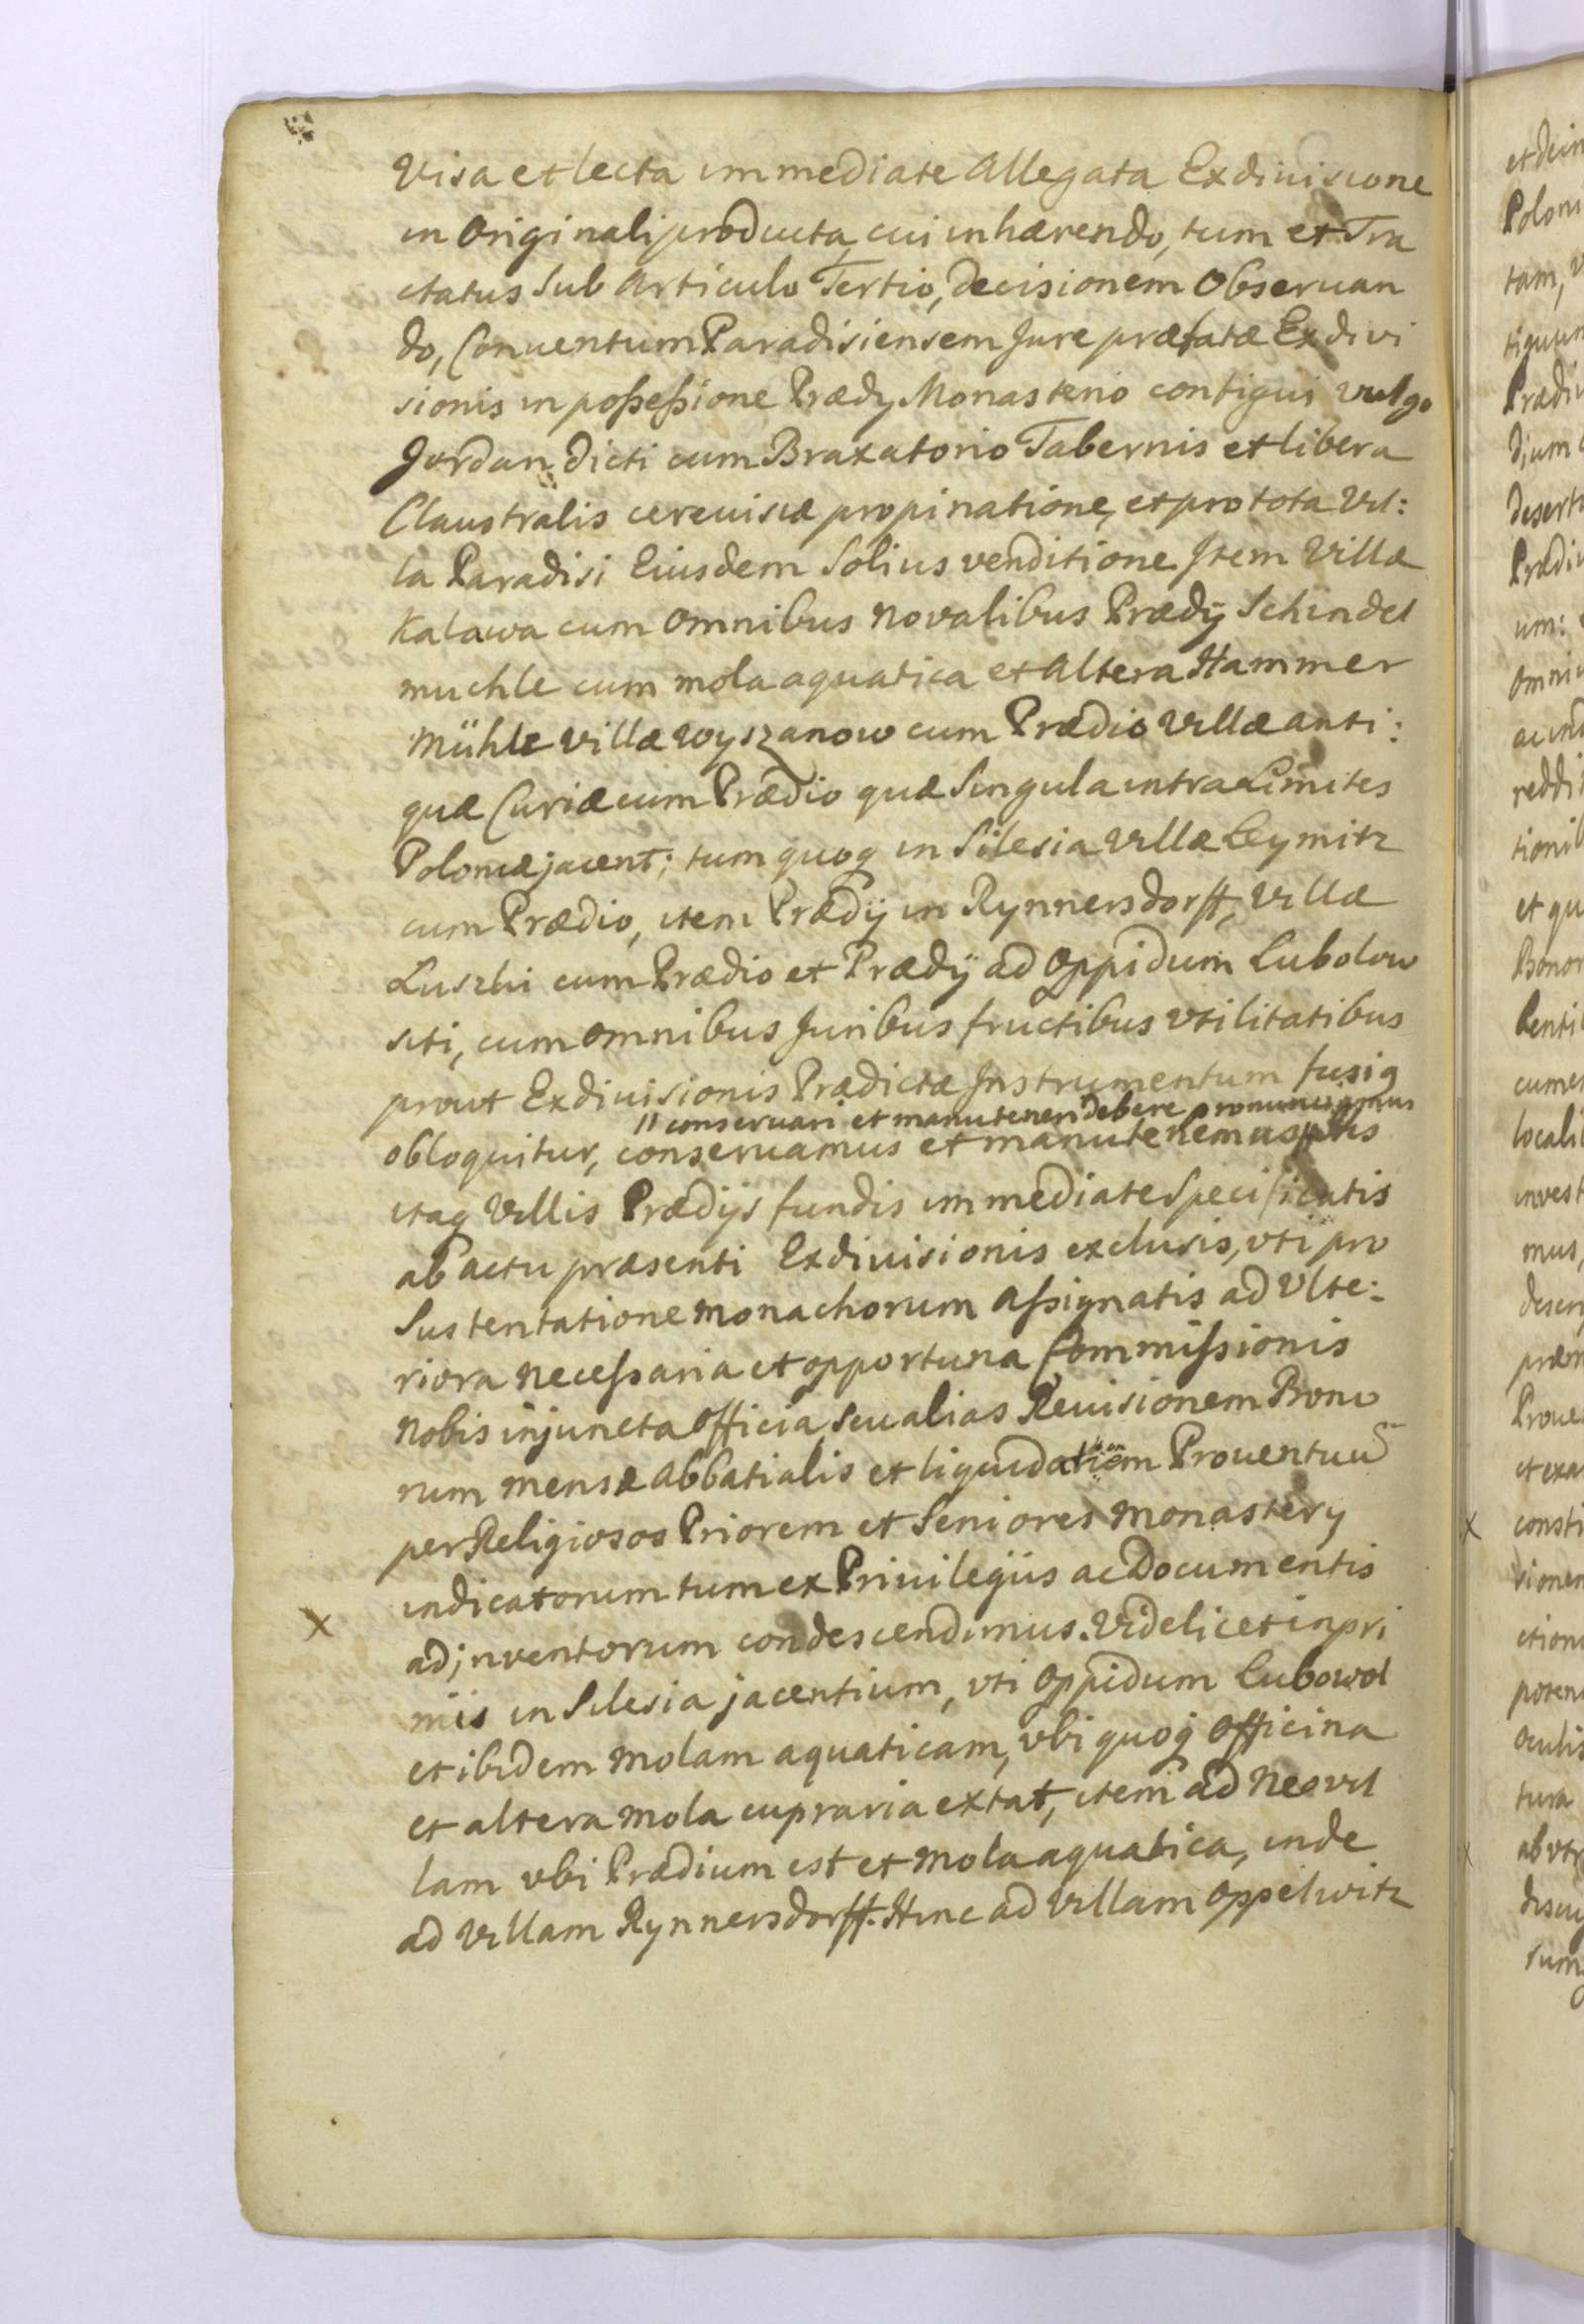 Visa et lecta immediate Allegata Exdiuisione
in Originali producta, cui inhærendo, tum et Tra
ctatus Sub Articulo Tertio, Decisionem Obseruan
do, Conuentum Paradisiensem Jure præfatæ Exdivi
sionis in poßeßione Prædy Monasterio contigui vulgo
Jordan dicti cum Braxatorio Tabernis et libera
Claustralis cereuisiæ propinatione, et pro tota Vil:
la Paradisi Eiusdem Solius venditione Jtem Villæ
Kalawa cum Omnibus Novalibus Prædÿ Schindel
muchle cum mola aquatica et Altera Hammer
Mühle Villæ Wyszanow cum Prædio Villæ anti:
quæ Curiæ cum Prædio quæ Singula intra Limites
Poloniæ jacent; tum quoq in Silesia Villæ Leymitz
cum Prædio, item Prædÿ in Rynnersdorff, Villæ
Luszhi cum Prædio et Prædÿ ad Oppidum Lubolow
siti, cum omnibus Juribus fructibus vtilitatibus
prout Exdiuisionis Prædictæ Jnstrumentum fusiq
// conseruari et manuteneri debere pronunciamus
obloquitur, conseruamus et manutenemus
itaq Villis Prædijs fundis immediate Specificatis
ab actu præsenti Exdiuisionis exclusis, vti pro
Sustentatione Monachorum Aßignatis ad Vlte:
riora neceßaria et opportuna Commißionis
Nobis injuncta Officia, seu alias Reuisionem Bono
rum mensæ Abbatialis et liquidatiõm Prouentuũ
per Religiosos Priorem et Seniores Monastery
indicatorum tum ex Priuilegiis ac Documentis
adjnventorum condescendimus. Videlicet inpri
mis in Silesia jacentium, vti Oppidum Lubowol
et ibidem Molam aquaticam, vbi quoq Officina
et altera Mola cupraria extat, item ad Neovil
lam vbi Prædium est et Mola aquatica, inde
ad Villam Rynnersdorff. Hinc ad Villam Oppelwitz